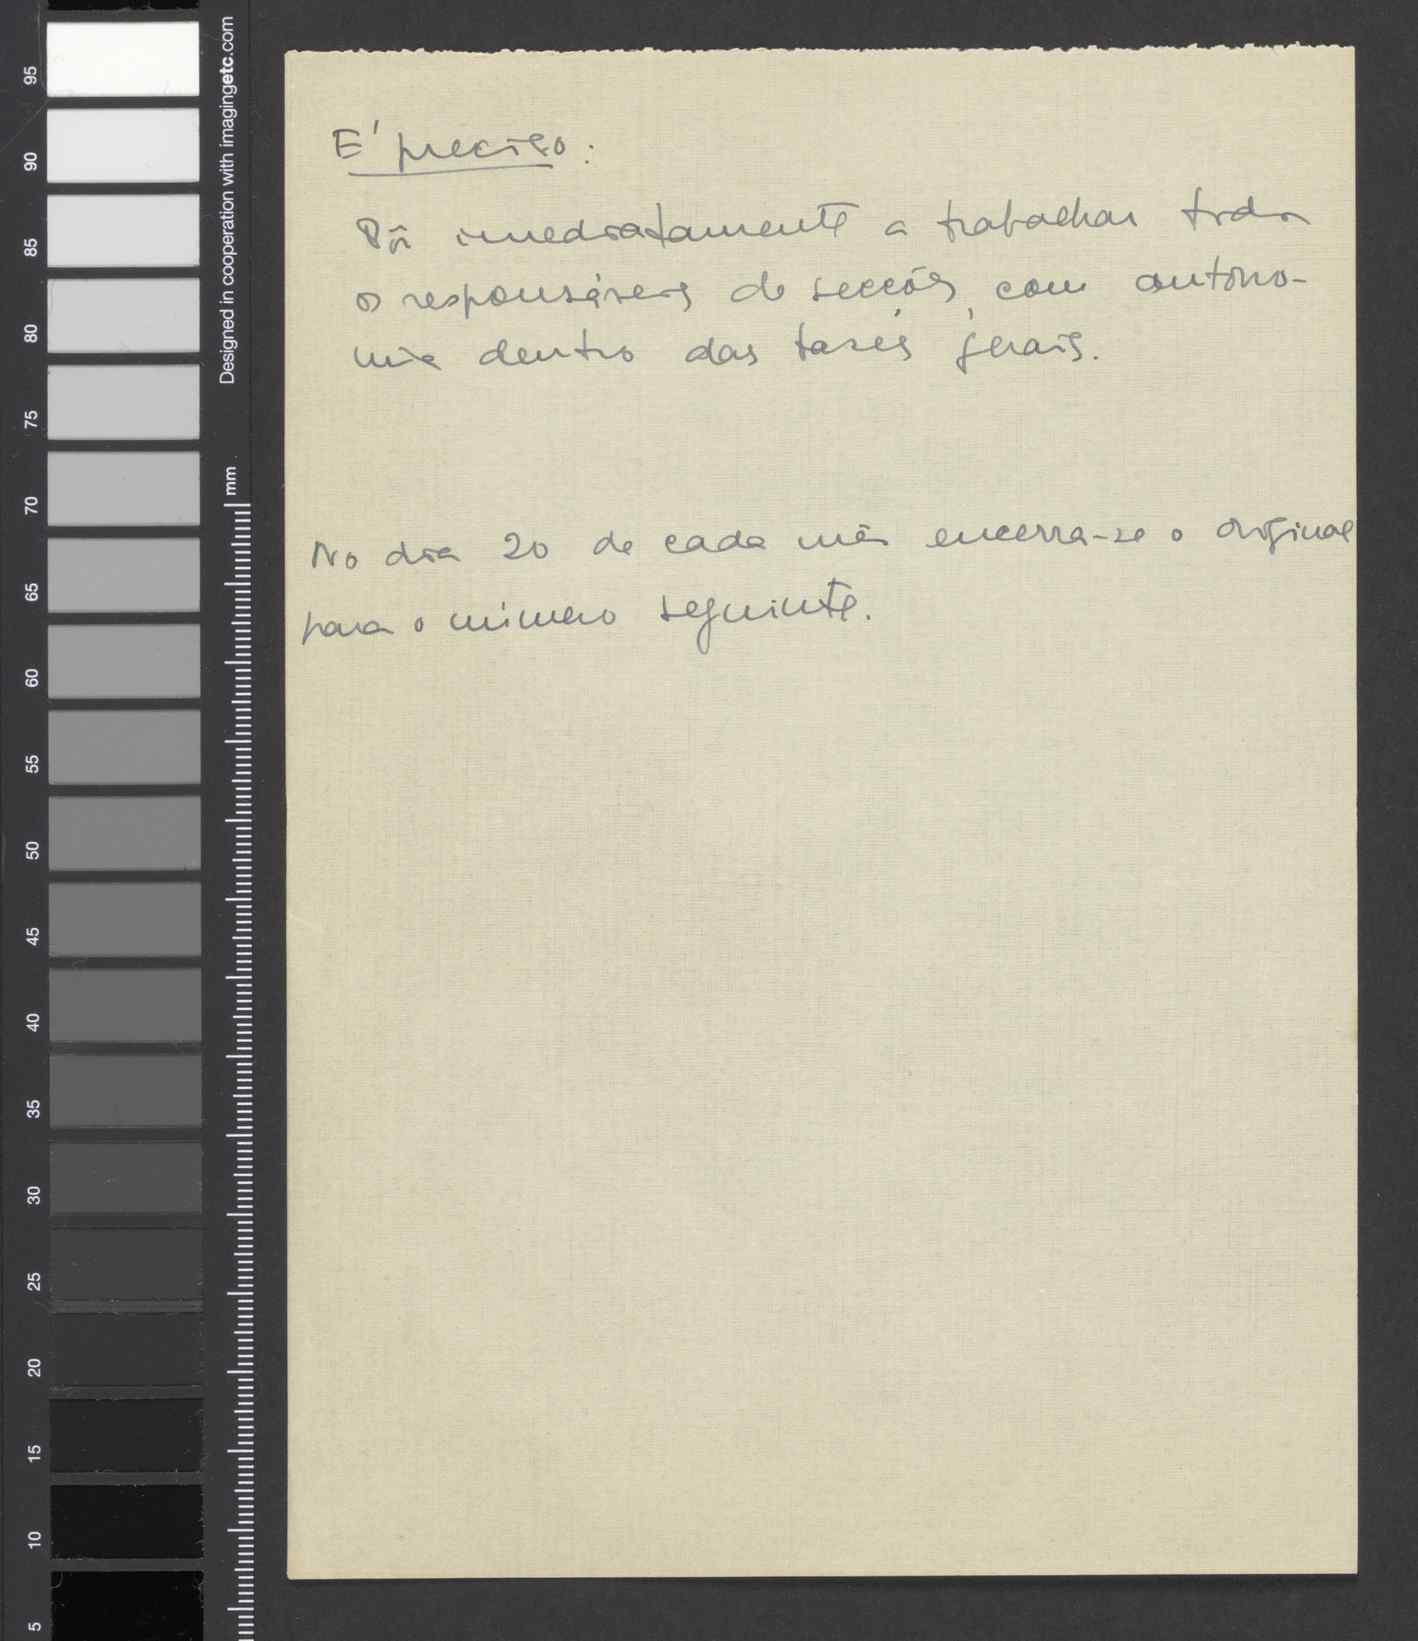 E' preciso:
Pôr imediatamente a trabalhar todos
os responsáveis de secções, com autono-
mia dentro das bases gerais.
No dia 20 de cada mês encerra-se o original
para o número seguinte.
Designed in cooperation with imagingetc.com
mm
95
90
85
80
75
70
65
60
55
50
45
40
35
30
25
20
15
10
5